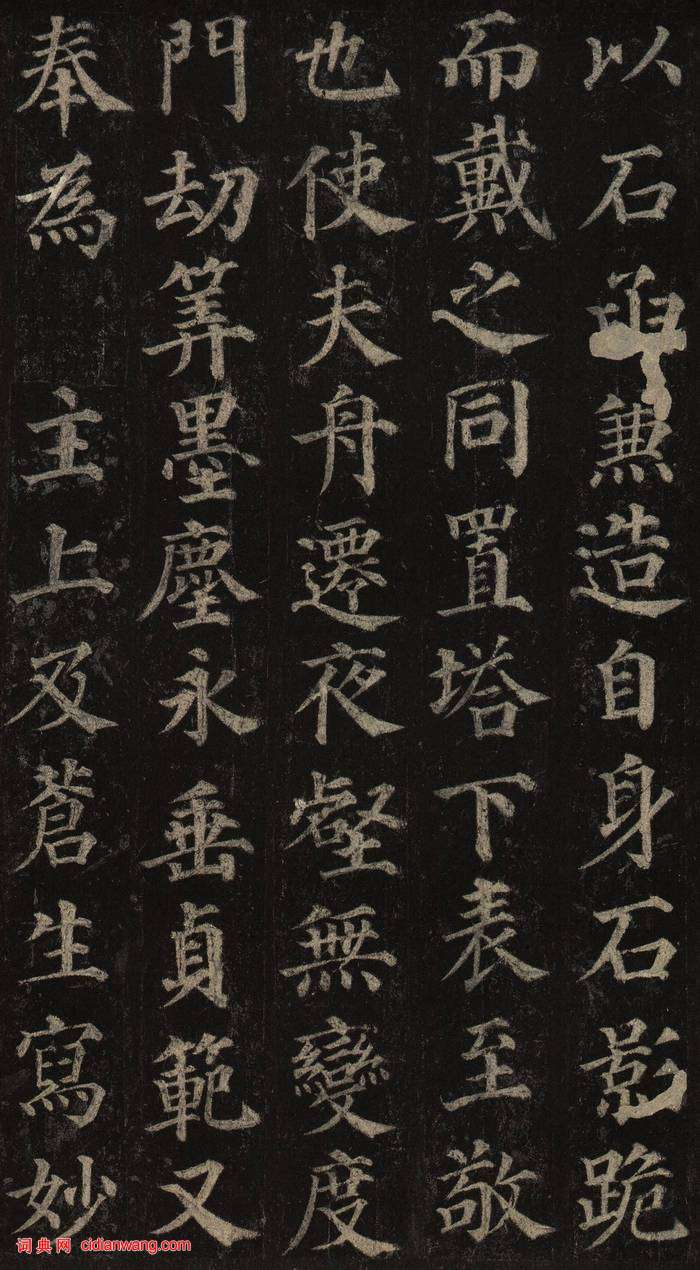 以石函兼造自身石影跪
而戴之同置塔下表至敬
也使夫舟遷夜壑無變度
門劫筭墨塵永垂貞範又
奉為 主上及蒼生寫妙
词典网 cidianwang.com